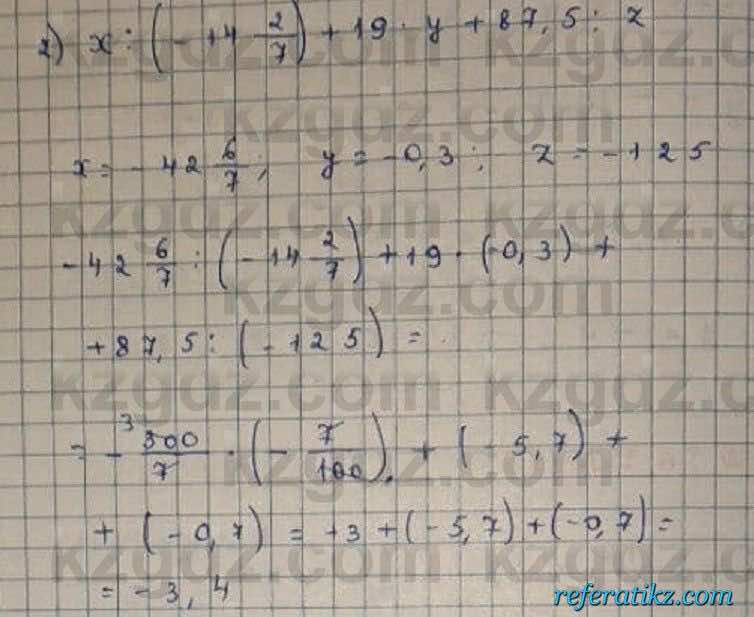 2) x : (-14 2/7) + 19 · y + 87,5 : z
x = -42 6/7; y = -0,3; z = -125
-42 6/7 : (-14 2/7) + 19 · (-0,3) +
+ 87,5 : (-125) =
= - ³300/7 · (- 7/100) + (-5,7) +
+ (-0,7) = +3 + (-5,7) + (-0,7) =
= -3,4
kzgdz.com
referatikz.com